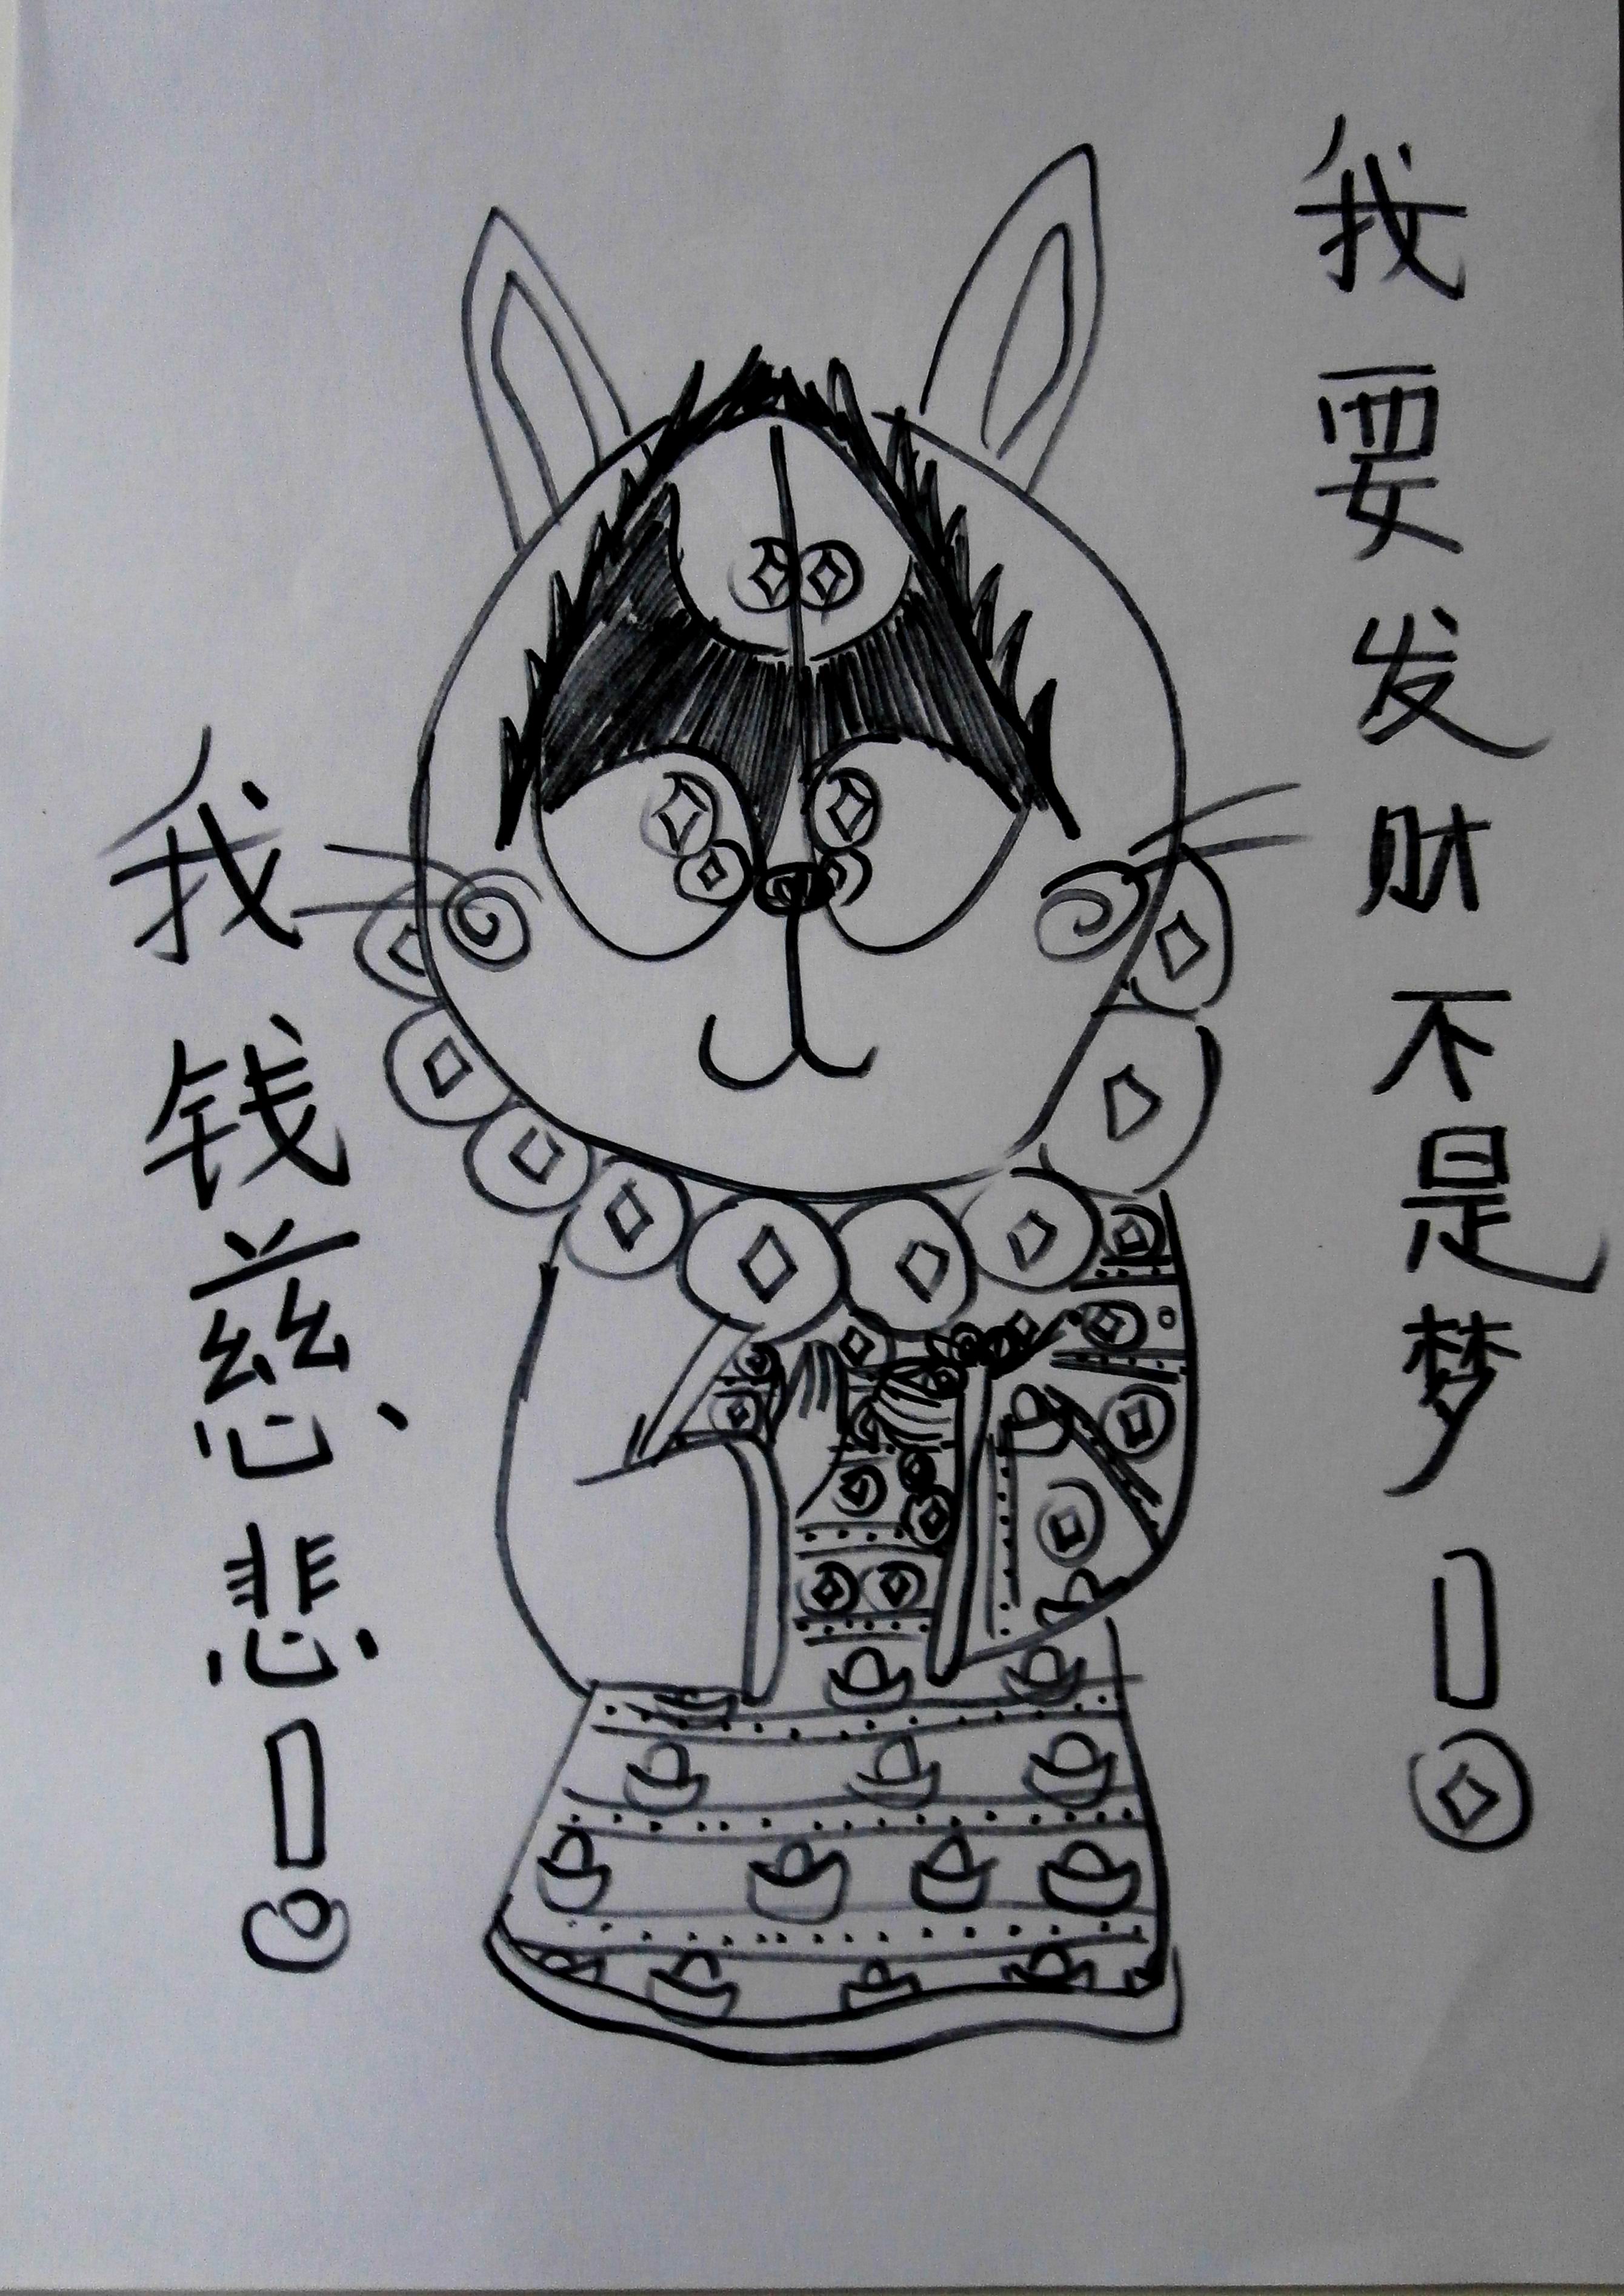 我要发财不是梦！
我钱慈悲！